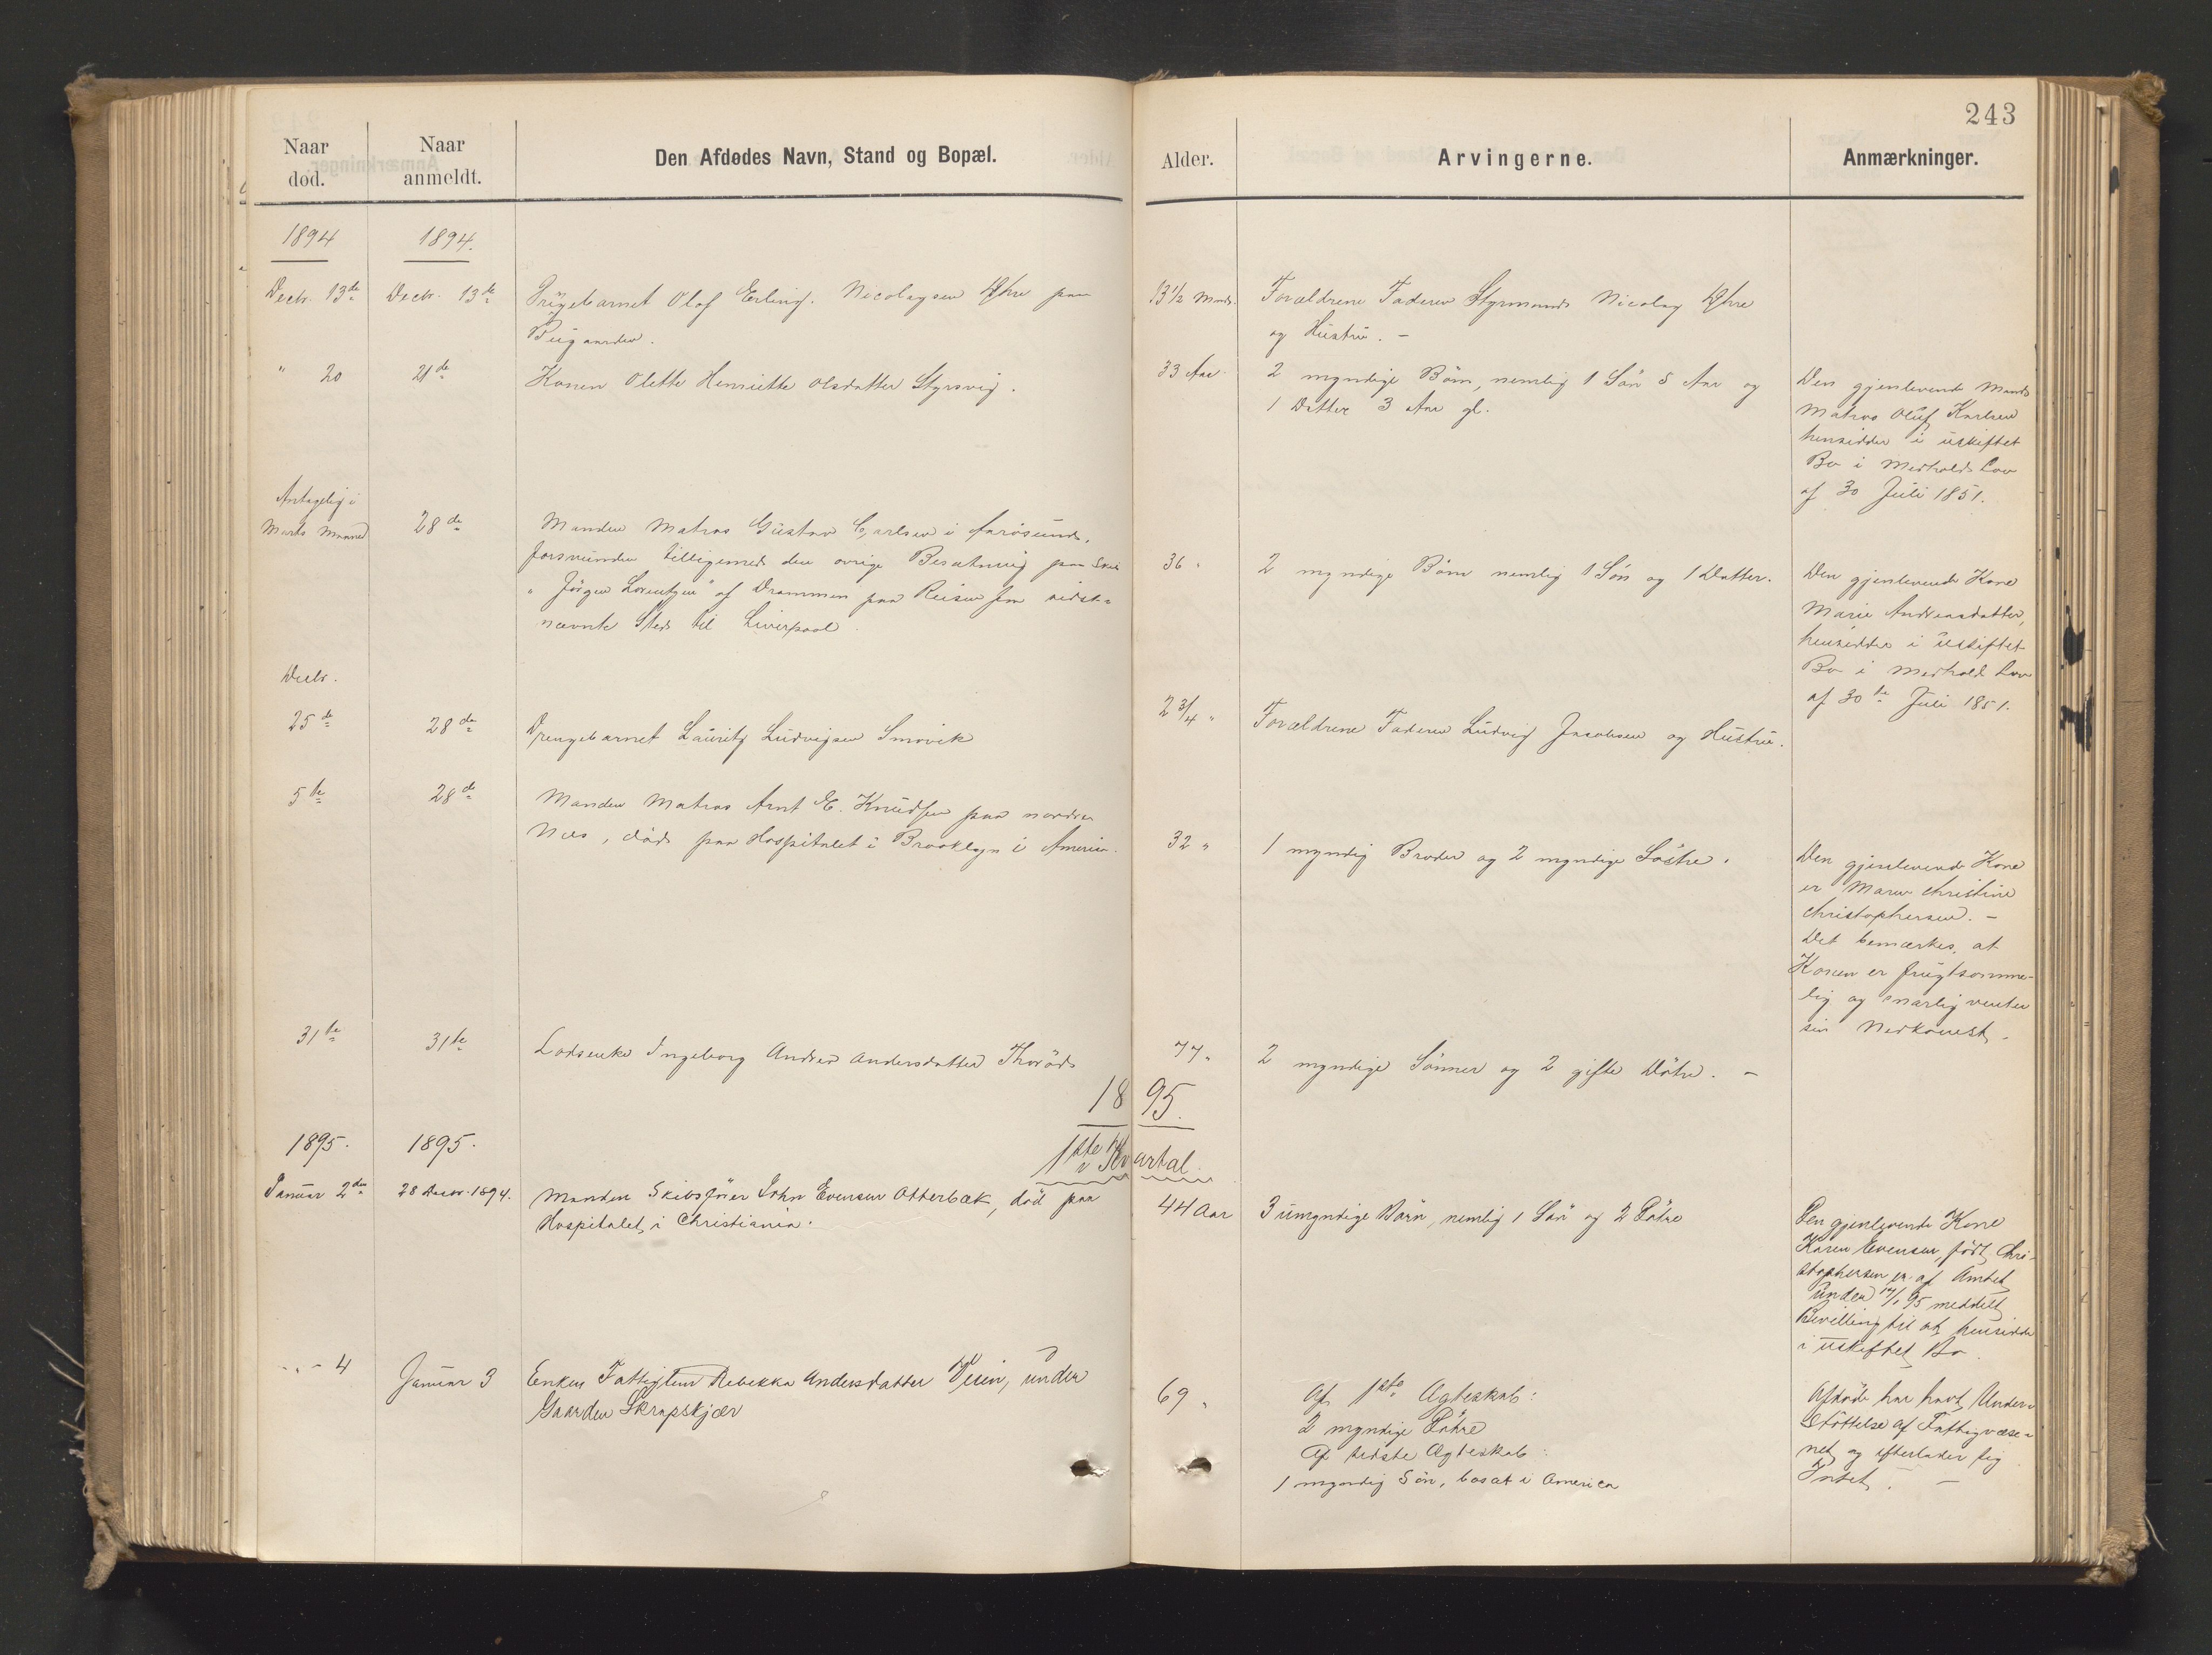 243
Naar død.
Naar anmeldt.
Den Afdødes Navn, Stand og Bopæl.
Alder.
Arvingerne.
Anmærkninger.
1894
1894.
Decbr. 13de
Decbr. 13de
Olaf Erling Nicolaysen paa
13 1/2 Mnd.
Forældrene Faderen Styrmand Nicolay
og Hüstrü. –
" 20
21de
Konen Olette Henriette Olsdatter Styrsvig.
33 Aar
2 myndige Börn, nemlig 1 Sön 5 Aar og
1 Datter 3 Aar gl.
Den gjenlevende Mand
Matros Olüf Karlsen
hensidder i üskiftet
Bo i Medhold Lov
af 30 Jüli 1851.
Antagelig i
Marts Maaned
28de
Manden Matros Güstav Carlsen i Aarösünd,
forsvünden tilligemed den övrige Besætning paa Skib
"Jörgen Lorentzen" af Drammen paa Reisen fra sidst-
nævnte Sted til Liverpool
36 "
2 myndige Börn nemlig 1 Sön og 1 Datter.
Den gjenlevende Kone
Marie Andreasdatter,
hensidder i üskiftet
Bo i Medhold Lov
af 30te Jüli 1851.
Decbr.
25de
28de
Drengebarnet Laüritz Lüdvigsen Smivik
2 3/4 "
Forældrene Faderen Lüdvig Jacobsen og Hüstrü.
5te
28de
Manden Matros Arnt E. Knüdsen paa nordre
Næs, död paa Hospitalet i Brooklyn i America.
32 "
1 myndig Broder og 2 myndige Söstre.
Den gjenlevende Kone
er Maren Christine
Christophersen. –
Det bemærkes, at
Konen er frügtsomme-
lig og snarlig venter
sin Nedkomst.
31te
31te
Lodsenke Ingeborg Andrea Andersdatter Thoröd
77 "
2 myndige Sönner og 2 gifte Dötre. –
1895.
1ste Kvartal.
1895.
1895.
Januar 2den
28 Decbr. 1894.
Manden Skibsförer John Evensen Otterbæk, död paa
Hospitalet i Christiania.
44 Aar
3 ümyndige Börn, nemlig 1 Sön og 2 Dötre
Den gjenlevende Kone
Karen Evensen, födt Chri-
stophersen er af Amtet
ünder 17/1 95 meddelt
Bevilling til at hensidde
i üskiftet Bo.
- " - 4
Januar 3
Enken Fattiglem Rebekka Andersdatter Veien, ünder
Gaarden Skrapskjær
69 "
Af 1ste Ægteskab:
2 myndige Dötre
Af sidste Ægteskab:
1 myndig Sön, bosat i America
Afdöde har havt Under-
stöttelse af Fattigvæse-
net og efterlader sig
Intet. –